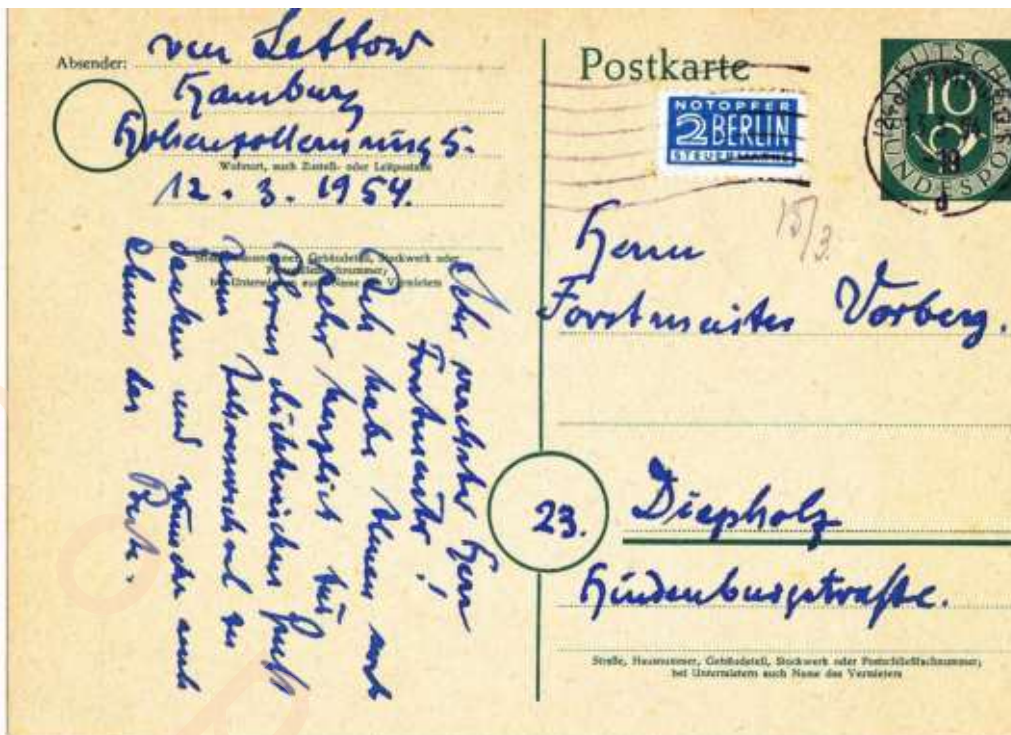 Absender: von Lettow
Hamburg
Hohenzollernring 5.
Wohnort, auch Zustell- oder Leitpostamt
12. 3. 1954.
Straße, Hausnummer, Gebäudeteil, Stockwerk oder
Postschließfachnummer;
bei Untermietern auch Name des Vermieters
Sehr verehrter Herr
Forstmeister!
Ich habe Ihnen noch
sehr herzlich für
Ihren dichterischen Gruß
zum
danken und wünsche auch
Ihnen das Beste.
Postkarte
NOTOPFER
2 BERLIN
STEUERMARKE
DEUTSCHE
BUNDESPOST
10
15/3.
Herrn
Forstmeister Vorberg.
23. Diepholz
Hindenburgstraße.
Straße, Hausnummer, Gebäudeteil, Stockwerk oder Postschließfachnummer;
bei Untermietern auch Name des Vermieters